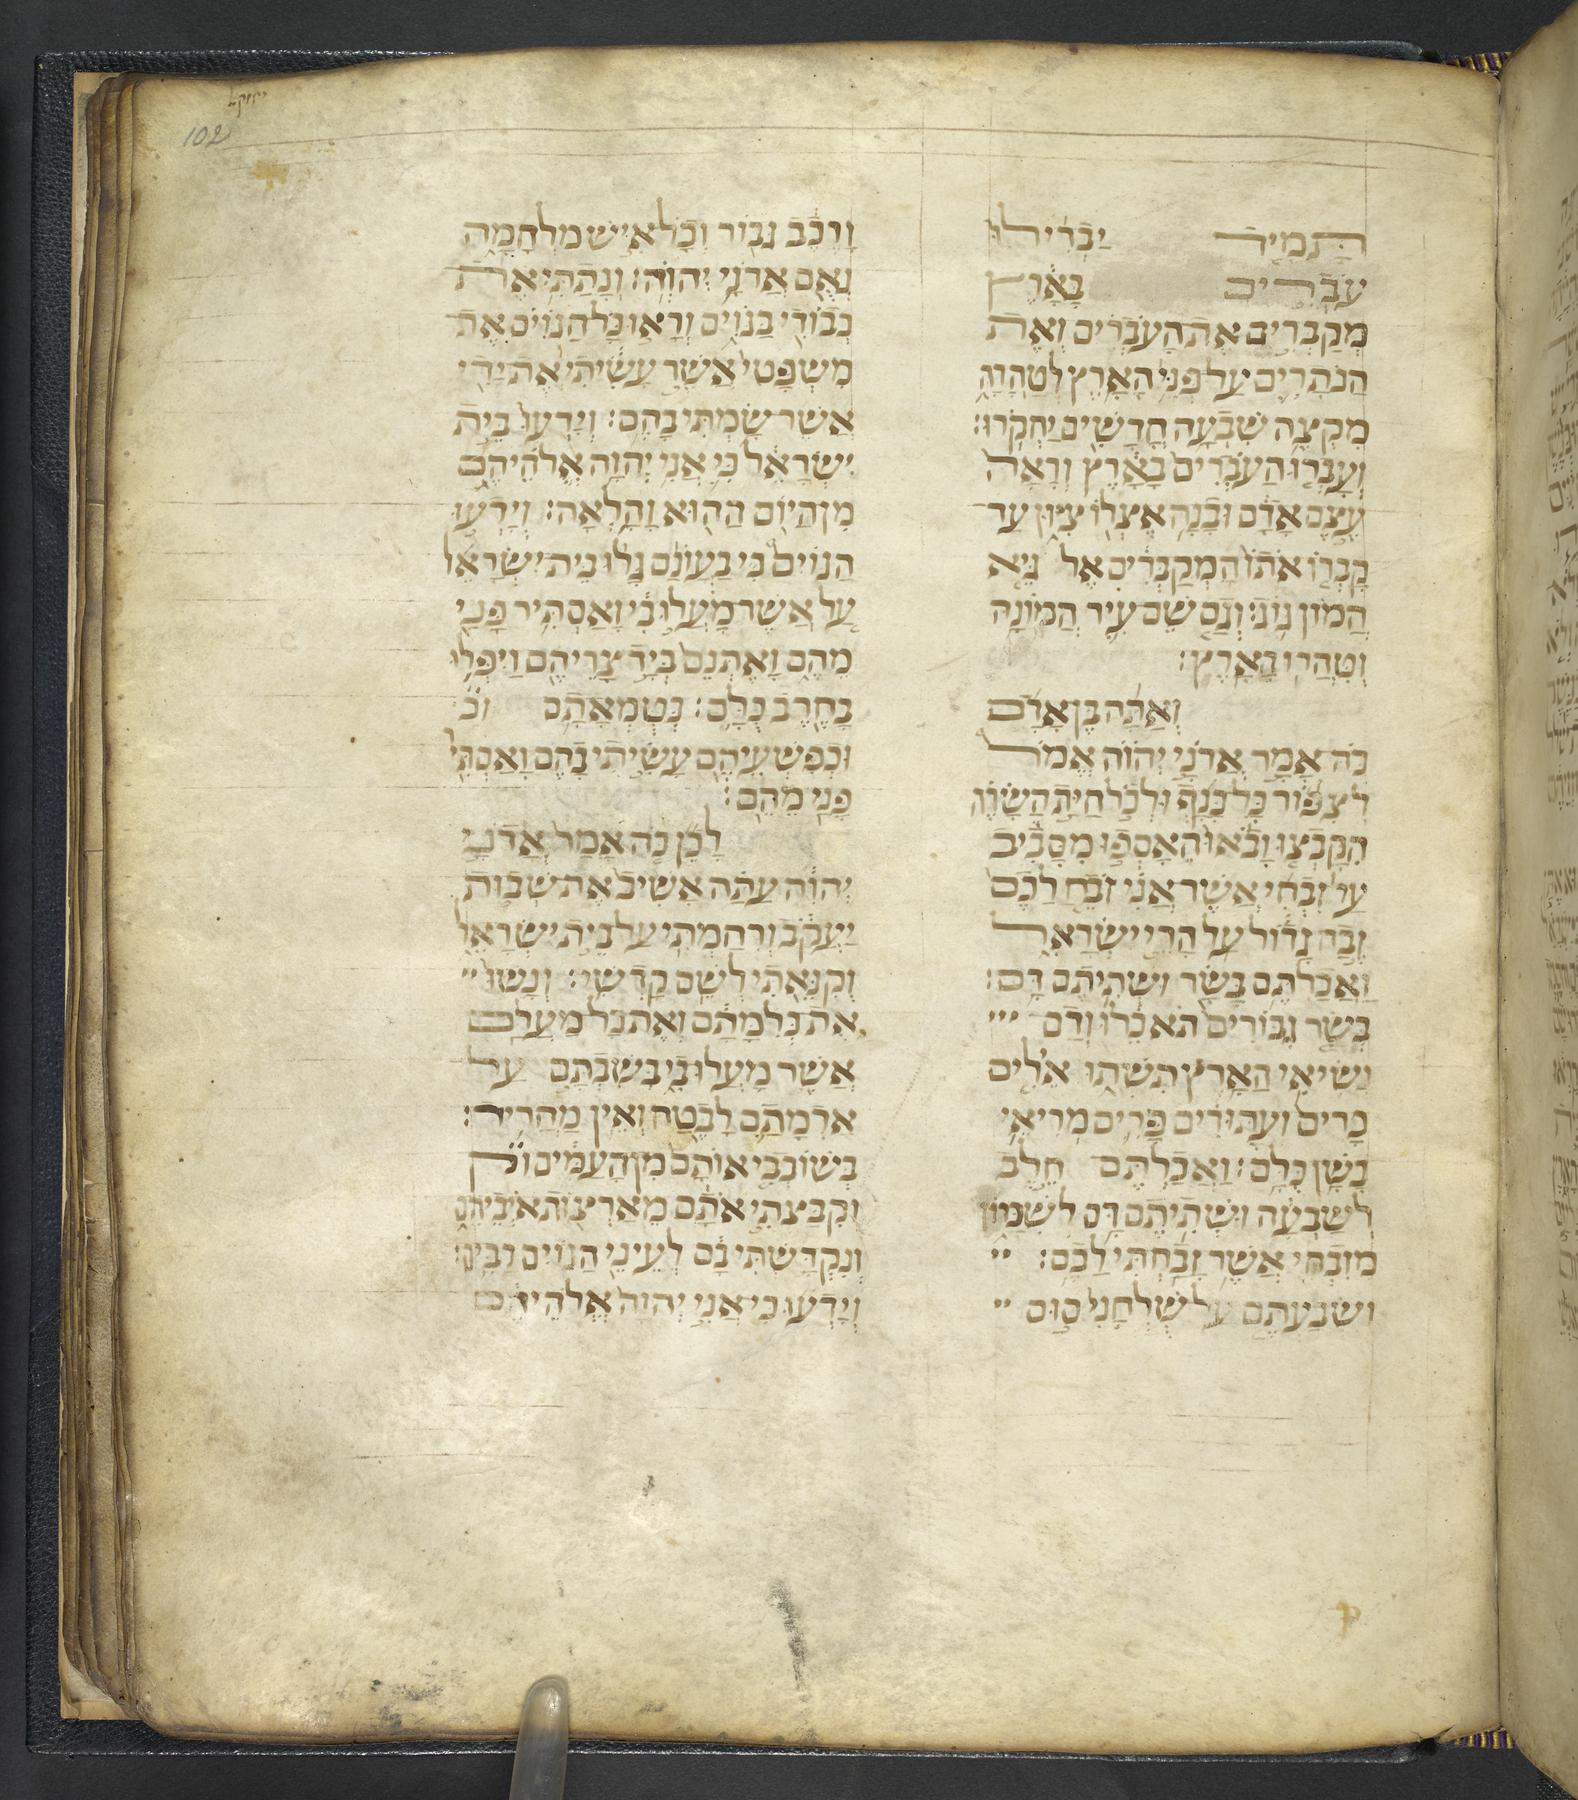 יחזקאל
102
תָּמִיד יַבְדִּילוּ
עֹבְרִים בָּאָרֶץ
מְקַבְּרִים אֶת הָעֹבְרִים וְאֶת
הַנּוֹתָרִים עַל פְּנֵי הָאָרֶץ לְטַהֲרָהּ
מִקְצֵה שִׁבְעָה חֳדָשִׁים יַחְקֹרוּ׃
וְעָבְרוּ הָעֹבְרִים בָּאָרֶץ וְרָאָה
עֶצֶם אָדָם וּבָנָה אֶצְלוֹ צִיּוּן עַד
קָבְרוּ אֹתוֹ הַמְקַבְּרִים אֶל גֵּיא
הֲמוֹן גּוֹג׃ וְגַם שֶׁם עִיר הֲמוֹנָה
וְטִהֲרוּ הָאָרֶץ׃
וְאַתָּה בֶן אָדָם
כֹּה אָמַר אֲדֹנָי יְהוִה אֱמֹר
לְצִפּוֹר כָּל כָּנָף וּלְכֹל חַיַּת הַשָּׂדֶה
הִקָּבְצוּ וָבֹאוּ הֵאָסְפוּ מִסָּבִיב
עַל זִבְחִי אֲשֶׁר אֲנִי זֹבֵחַ לָכֶם
זֶבַח גָּדוֹל עַל הָרֵי יִשְׂרָאֵל
וַאֲכַלְתֶּם בָּשָׂר וּשְׁתִיתֶם דָּם׃
בְּשַׂר גִּבּוֹרִים תֹּאכֵלוּ וְדַם
נְשִׂיאֵי הָאָרֶץ תִּשְׁתּוּ אֵלִים
כָּרִים וְעַתּוּדִים פָּרִים מְרִיאֵי
בָשָׁן כֻּלָּם׃ וַאֲכַלְתֶּם חֵלֶב
לְשָׂבְעָה וּשְׁתִיתֶם דָּם לְשִׁכָּרוֹן
מִזִּבְחִי אֲשֶׁר זָבַחְתִּי לָכֶם׃
וּשְׂבַעְתֶּם עַל שֻׁלְחָנִי סוּס
וָרֶכֶב גִּבּוֹר וְכָל אִישׁ מִלְחָמָה
נְאֻם אֲדֹנָי יְהוִה׃ וְנָתַתִּי אֶת
כְּבוֹדִי בַּגּוֹיִם וְרָאוּ כָל הַגּוֹיִם אֶת
מִשְׁפָּטִי אֲשֶׁר עָשִׂיתִי וְאֶת יָדִי
אֲשֶׁר שַׂמְתִּי בָהֶם׃ וְיָדְעוּ בֵּית
יִשְׂרָאֵל כִּי אֲנִי יְהוָה אֱלֹהֵיהֶם
מִן הַיּוֹם הַהוּא וָהָלְאָה׃ וְיָדְעוּ
הַגּוֹיִם כִּי בַעֲוֹנָם גָּלוּ בֵית יִשְׂרָאֵל
עַל אֲשֶׁר מָעֲלוּ בִי וָאַסְתִּיר פָּנַי
מֵהֶם וָאֶתְּנֵם בְּיַד צָרֵיהֶם וַיִּפְּלוּ
בַחֶרֶב כֻּלָּם׃ כְּטֻמְאָתָם וכ
וּכְפִשְׁעֵיהֶם עָשִׂיתִי בָהֶם וָאַסְתִּיר
פָּנַי מֵהֶם׃
לָכֵן כֹּה אָמַר אֲדֹנָי
יְהוִה עַתָּה אָשִׁיב אֶת שְׁבוּת
יַעֲקֹב וְרִחַמְתִּי עַל בֵּית יִשְׂרָאֵל
וְקִנֵּאתִי לְשֵׁם קָדְשִׁי׃ וְנָשׂוּ
אֶת כְּלִמָּתָם וְאֶת כָּל מַעֲלָם
אֲשֶׁר מָעֲלוּ בִי בְּשִׁבְתָּם עַל
אַדְמָתָם לָבֶטַח וְאֵין מַחֲרִיד׃
בְּשׁוֹבְבִי אוֹתָם מִן הָעַמִּים וק
וְקִבַּצְתִּי אֹתָם מֵאַרְצוֹת אֹיְבֵיהֶם
וְנִקְדַּשְׁתִּי בָם לְעֵינֵי הַגּוֹיִם רַבִּים׃
וְיָדְעוּ כִּי אֲנִי יְהוָה אֱלֹהֵיהֶם